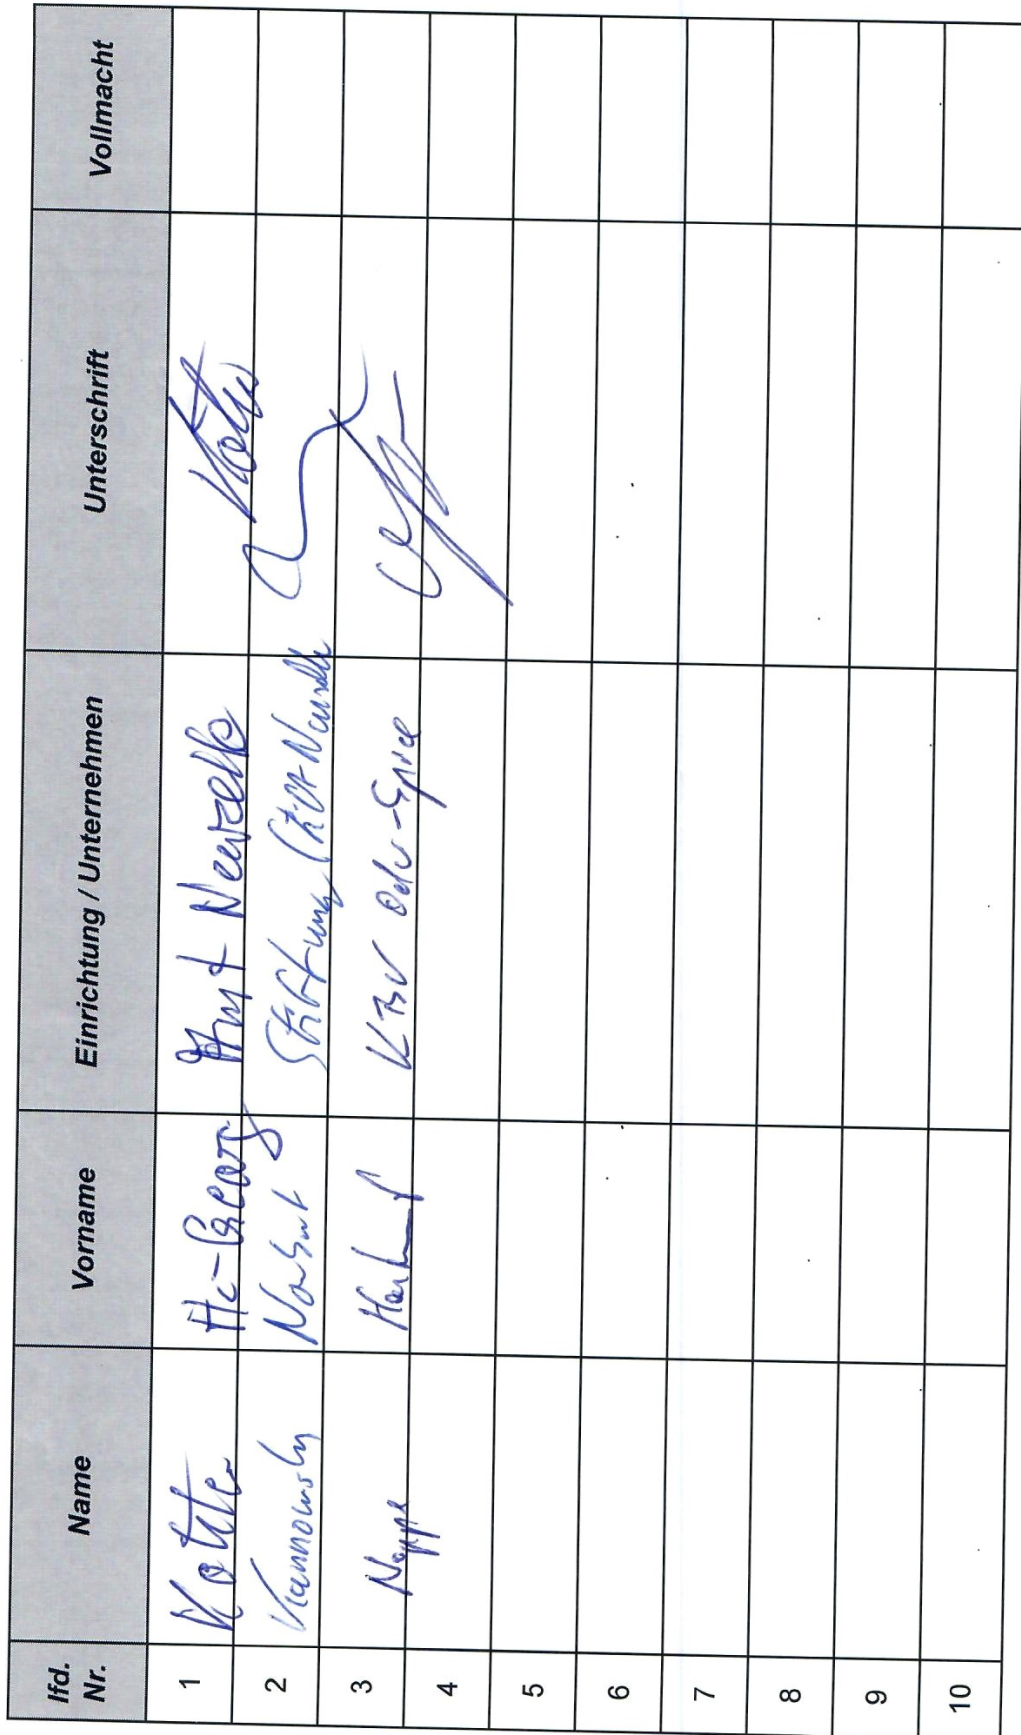 lfd. Nr. Name Vorname Einrichtung / Unternehmen Unterschrift Vollmacht
1 H.-Georg Amt Neuzelle
2 Kannowsky Norbert Stiftung Stift Neuzelle
3 KBV Oder-Spree
4
5
6
7
8
9
10